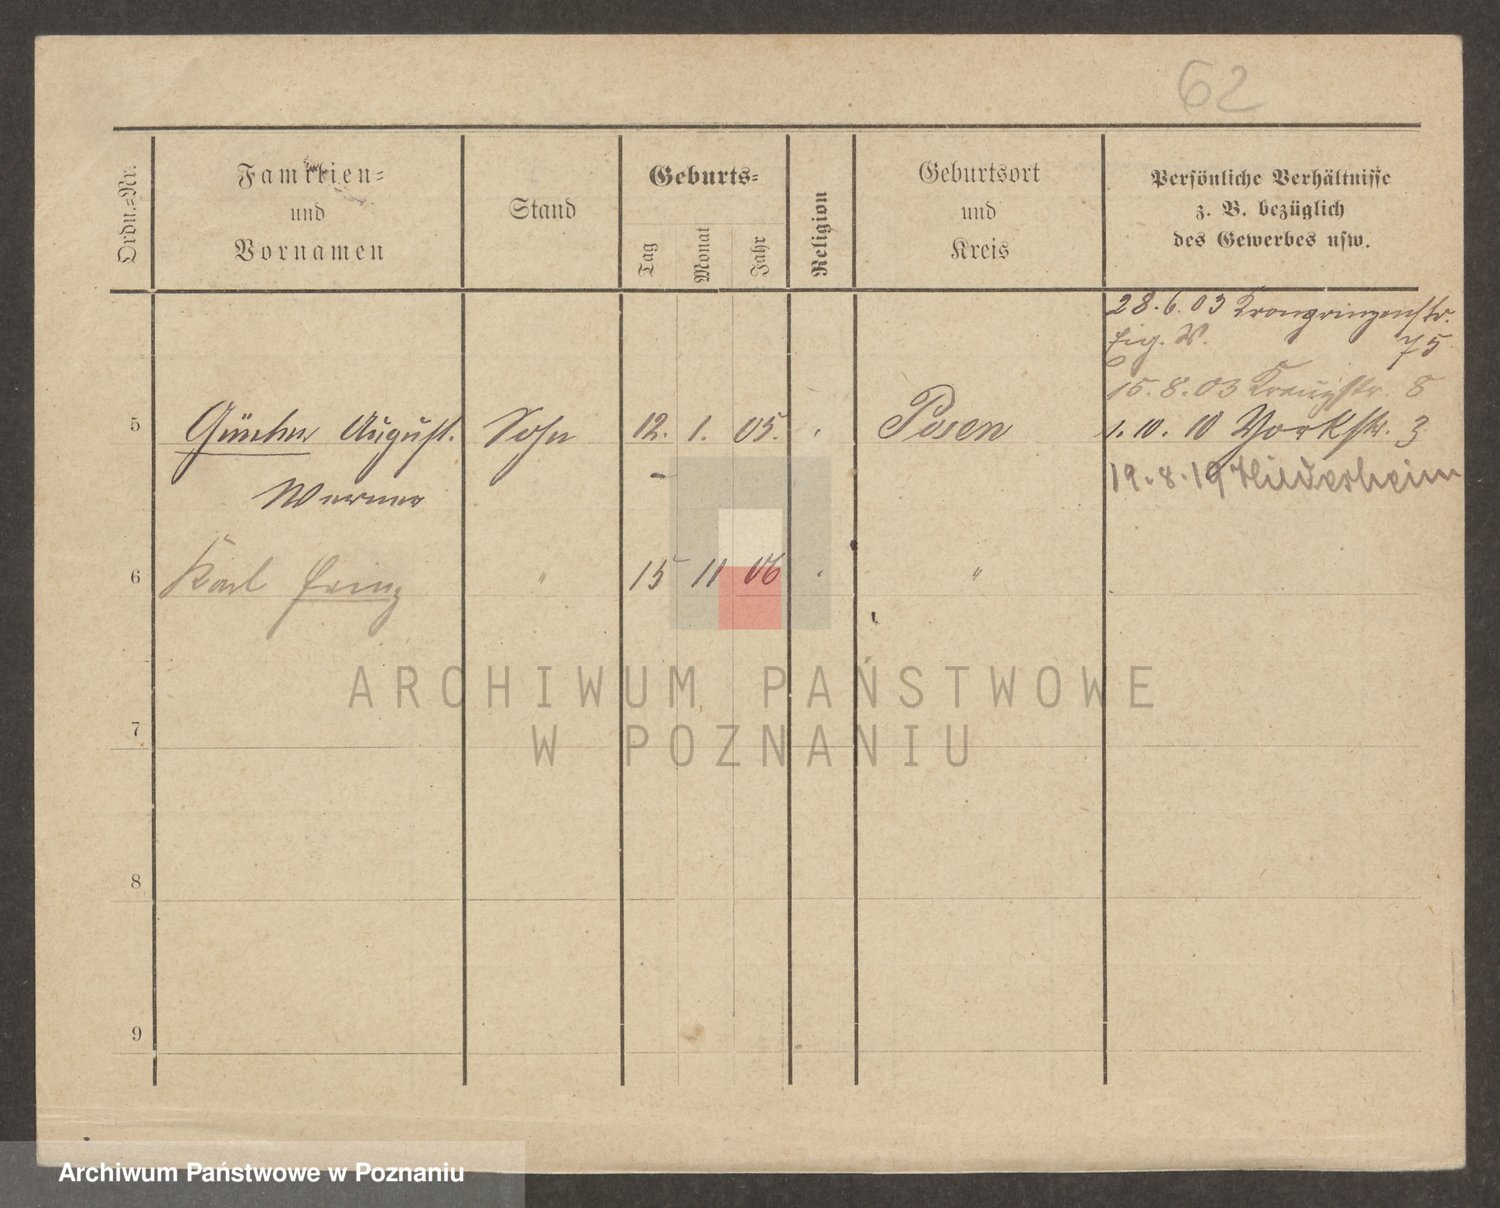 62
Ordn.-Nr.
Familien-
und
Vornamen
Stand
Geburts-
Tag
Monat
Jahr
Religion
Geburtsort
und
Kreis
Persönliche Verhältnisse
z. B. bezüglich
des Gewerbes usw.
28.6.03 Kronprinzenstr.
75
15.8.03 Kreuzstr. 8
5 Günther August. Sohn 12. 1. 05. Posen 1.10.10 Yorkstr. 3
Werner
19.8.19 Hildesheim
6 Karl Prinz " 15 11 06 "
7
8
9
ARCHIWUM PAŃSTWOWE
W POZNANIU
Archiwum Państwowe w Poznaniu